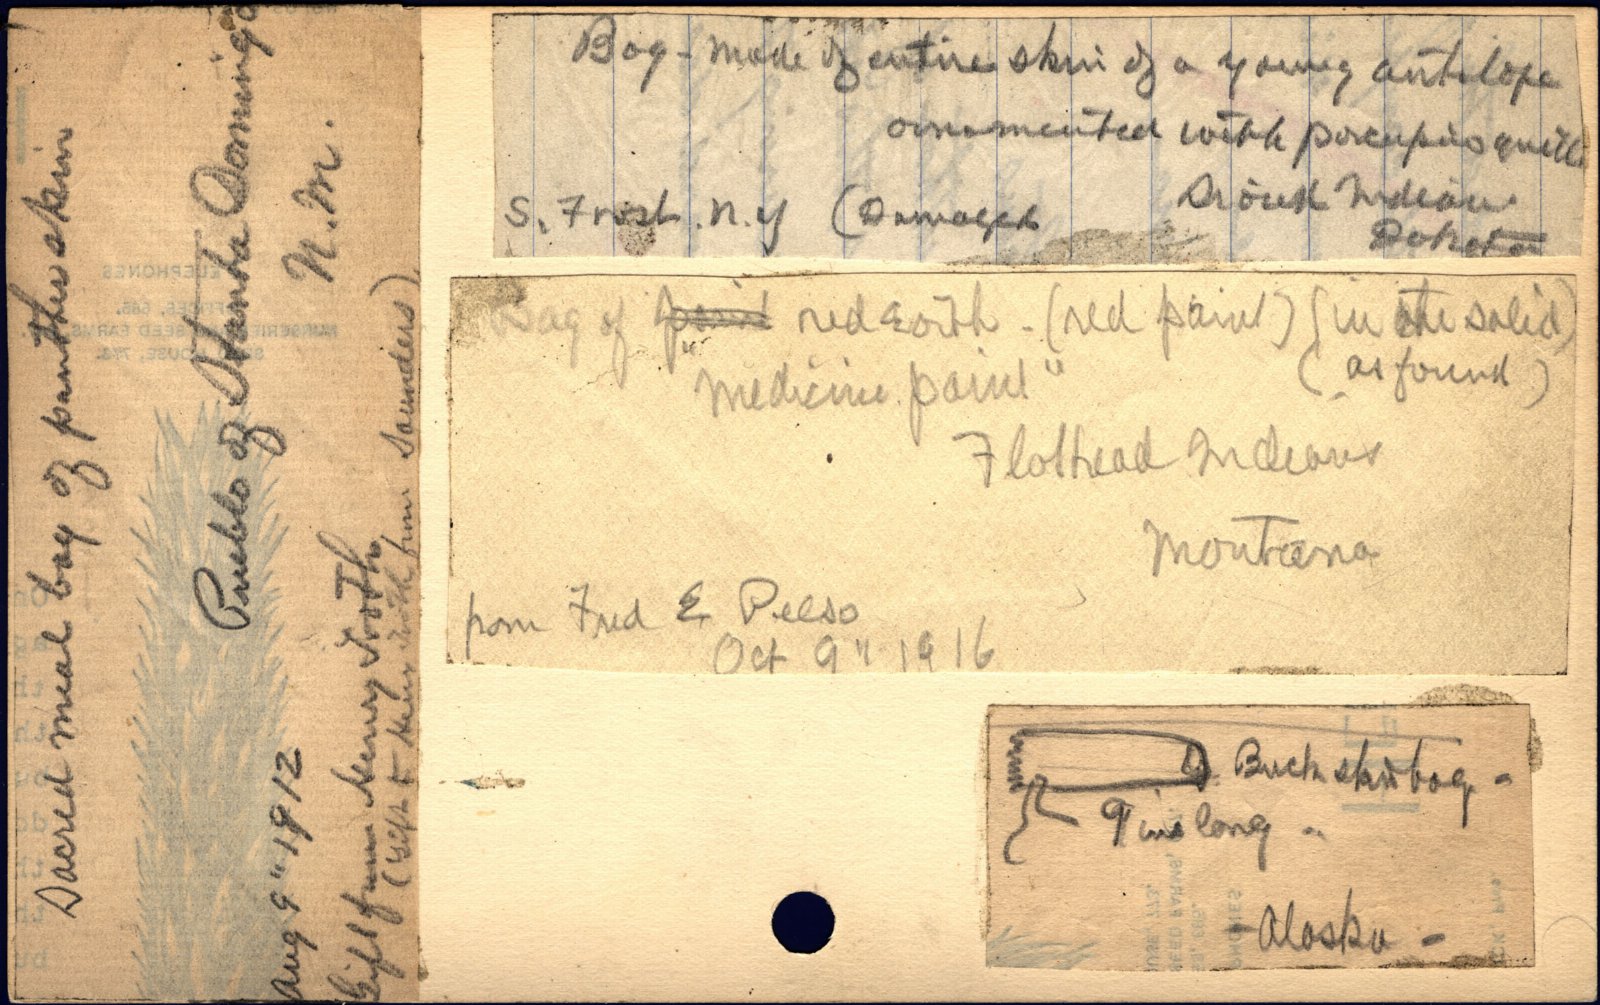 Sacred meal bag of panther skin
Pueblo of Santa Domingo
N. M.
Aug 9" 1912
Gift from Henry
from Saunders)
Bag - made of entire skin of a young antelope
ornamented with porcupine quills
Sioux Indians
S. Frost. N. Y (Damaged
Dakota
Bag of paint red earth - (red paint) (in the solid)
"Medicine paint" (as found)
Flathead Indians
Montana
from Fred E Pelso
Oct 9" 1916
Buckskin bag -
9 ins long -
Alaska -
TELEPHONES
OFFICES, 665.
NURSERIES AND SEED FARMS
SEED HOUSE, 773.